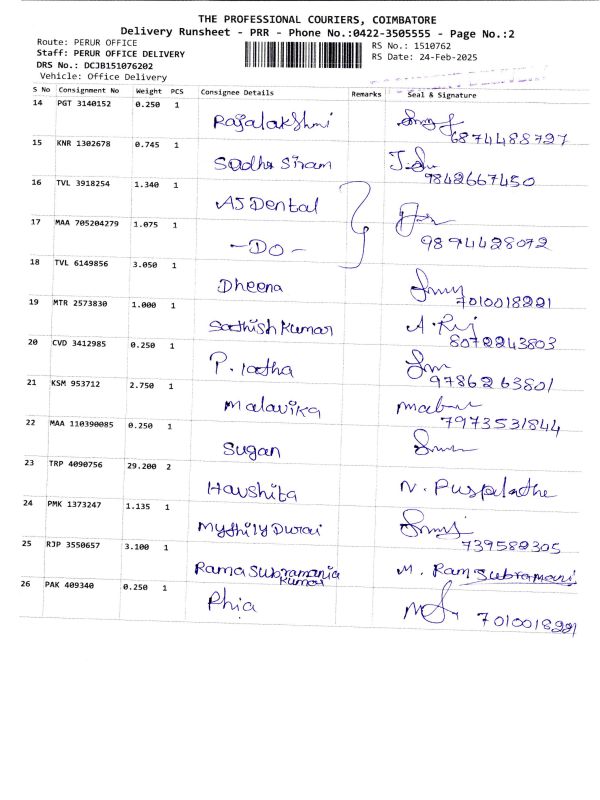 THE PROFESSIONAL COURIERS, COIMBATORE
Delivery Runsheet - PRR - Phone No.:0422-3505555 - Page No.:2
Route: PERUR OFFICE
RS No.: 1510762
Staff: PERUR OFFICE DELIVERY
RS Date: 24-Feb-2025
DRS No.: DCJB151076202
Vehicle: Office Delivery
S No Consignment No Weight PCS Consignee Details Remarks Seal & Signature
14 PGT 3140152 0.250 1
Rajalakshmi
6874488727
15 KNR 1302678 0.745 1
Sadhu Sriram
9842667450
16 TVL 3918254 1.340 1
AJ Dental
17 MAA 705204279 1.075 1
- DO -
9894428072
18 TVL 6149856 3.050 1
Dheena
7010018221
19 MTR 2573830 1.000 1
Sathish Kumar A. Raj
8072243803
20 CVD 3412985 0.250 1
P. latha
9786263801
21 KSM 953712 2.750 1
Malavika
7973531844
22 MAA 110390085 0.250 1
Sugan
23 TRP 4090756 29.200 2
Harshita N. Puspalathe
24 PMK 1373247 1.135 1
Mythily Durai
739582305
25 RJP 3550657 3.100 1
Rama Subramania M. Ram Subramani
Kumar
26 PAK 409340 0.250 1
Phia 7010018221